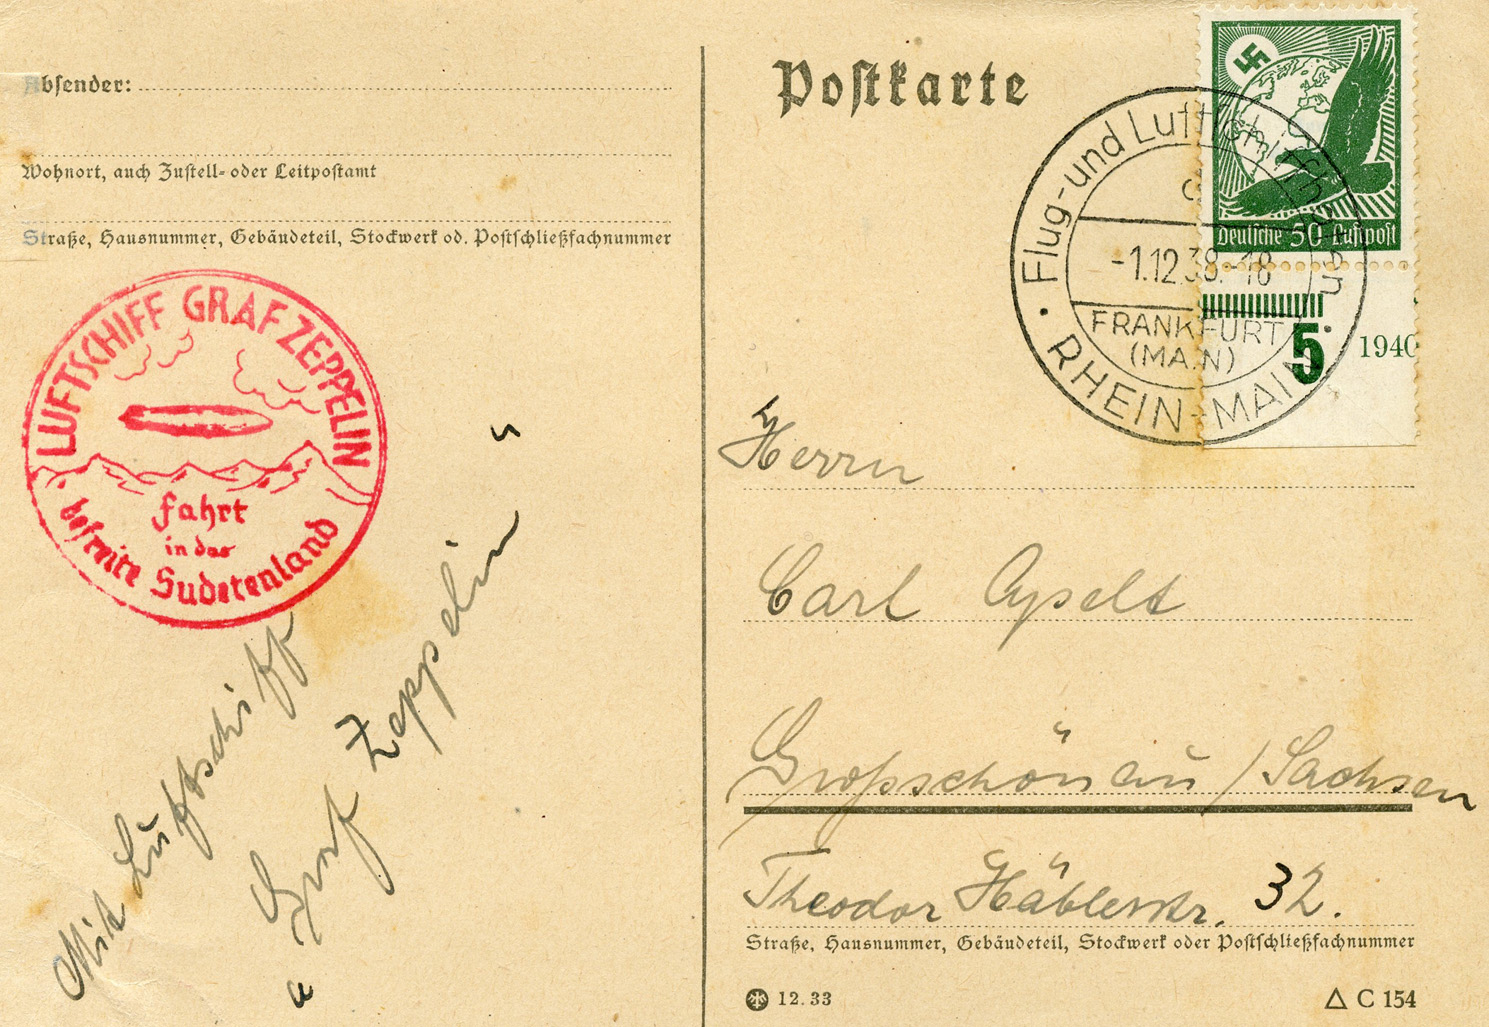 Absender:
Wohnort, auch Zustell- oder Leitpostamt
Straße, Hausnummer, Gebäudeteil, Stockwerk od. Postschließfachnummer
LUFTSCHIFF GRAF ZEPPELIN
Fahrt
in das
befreite Sudetenland
Mit Luftschiff
"Graf Zeppelin"
Postkarte
Deutsche 50 Luftpost
5
1940
Flug- und Luftschiffhafen
-1.12.38.-18
FRANKFURT
(MAIN)
RHEIN-MAIN
Herrn
Carl Apelt
Großschönau / Sachsen
Theodor Häblerstr. 32.
Straße, Hausnummer, Gebäudeteil, Stockwerk oder Postschließfachnummer
12.33
C 154